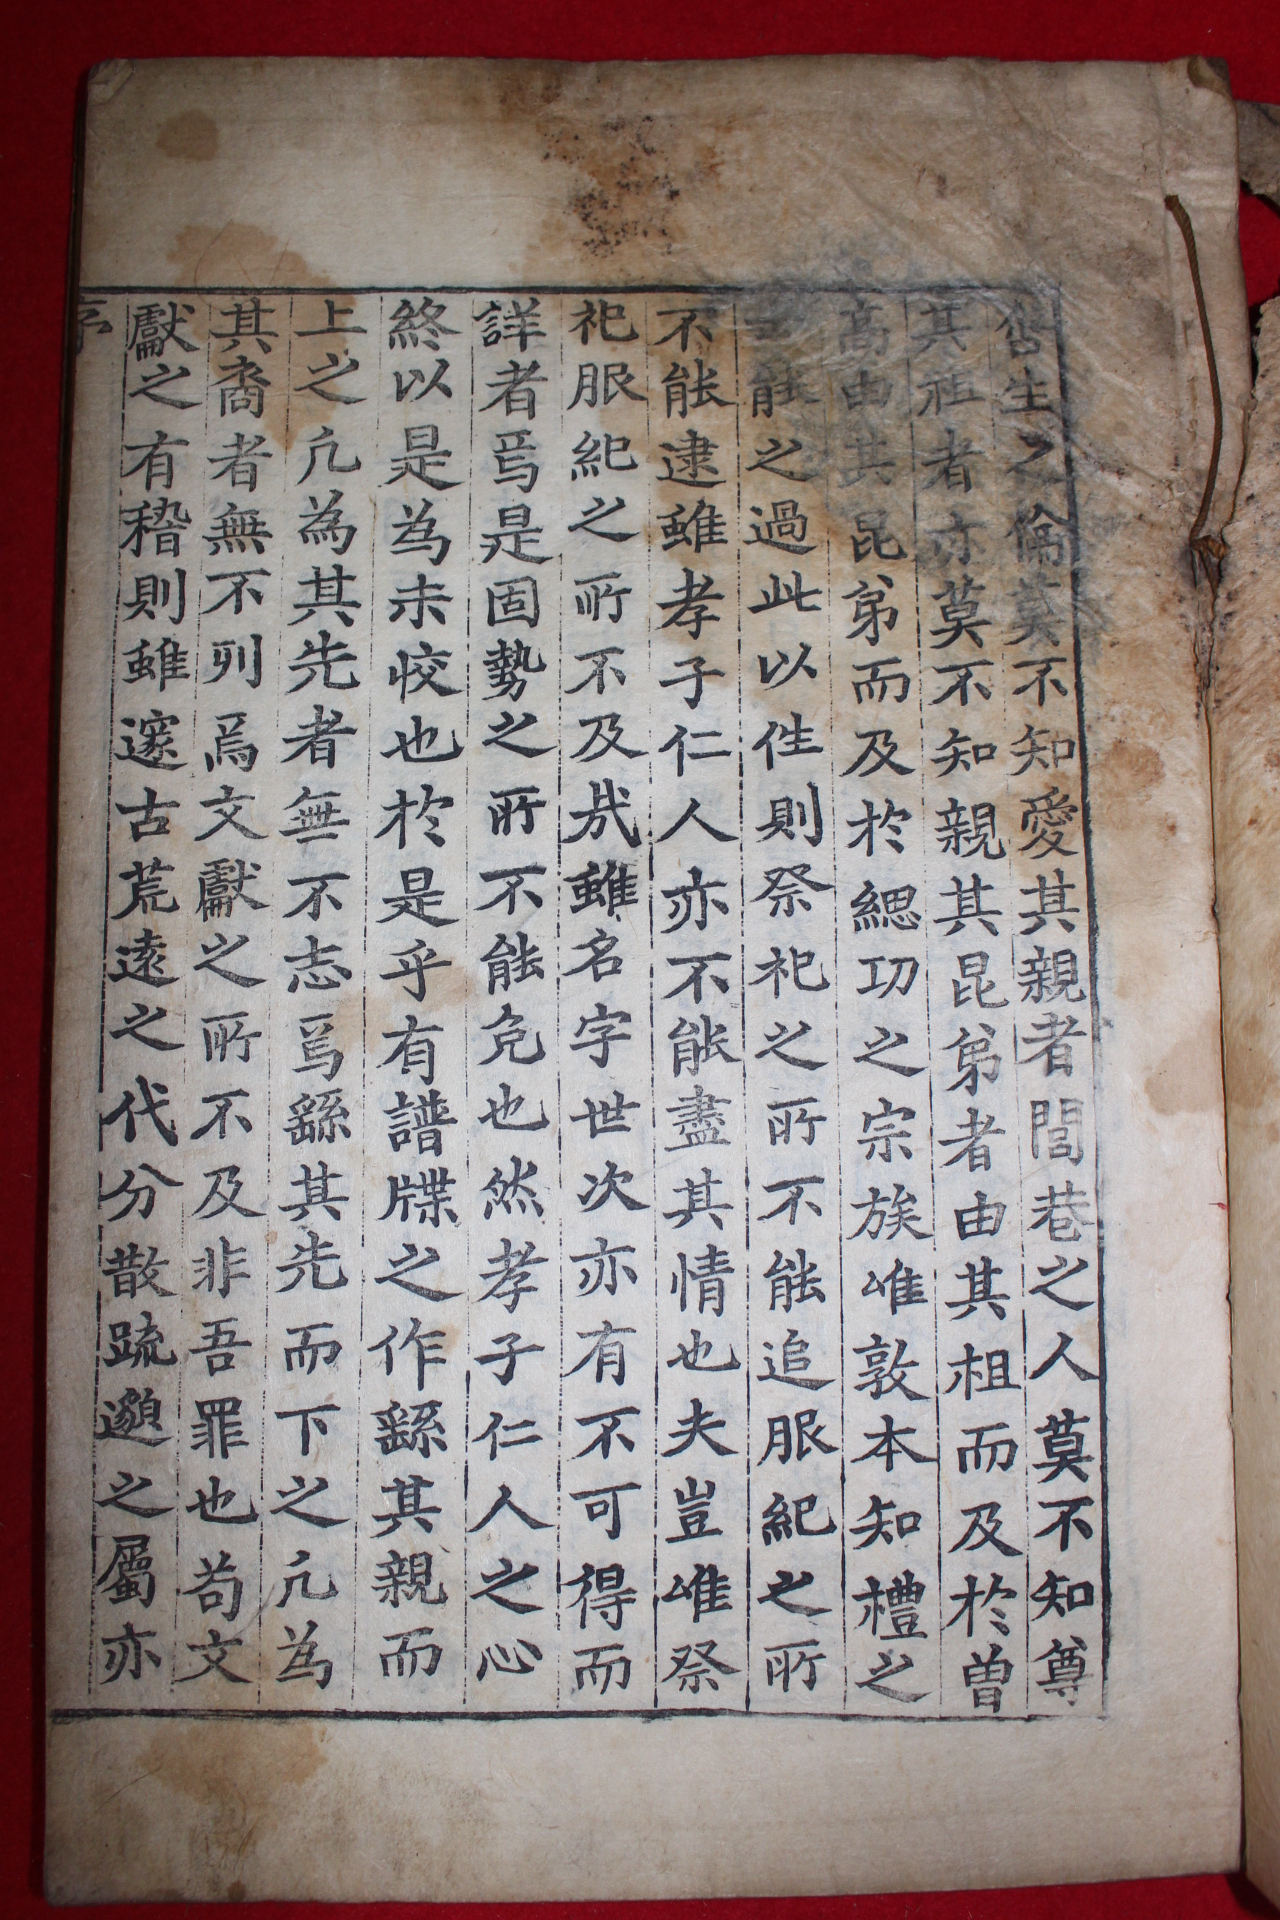 含生之倫莫不知愛其親者閭巷之人莫不知尊
其祖者亦莫不知親其昆弟者由其祖而及於曾
高由其昆弟而及於緦功之宗族唯敦本知禮之
能之過此以徃則祭祀之所不能追服紀之所
不能逮雖孝子仁人亦不能盡其情也夫豈唯祭
祀服紀之所不及㦲雖名字世次亦有不可得而
詳者焉是固勢之所不能免也然孝子仁人之心
終以是為未恔也於是乎有譜牒之作繇其親而
上之凢為其先者無不志焉繇其先而下之凢為
其裔者無不列焉文獻之所不及非吾罪也苟文
獻之有稽則雖邃古荒遠之代分散疏邈之屬亦
序